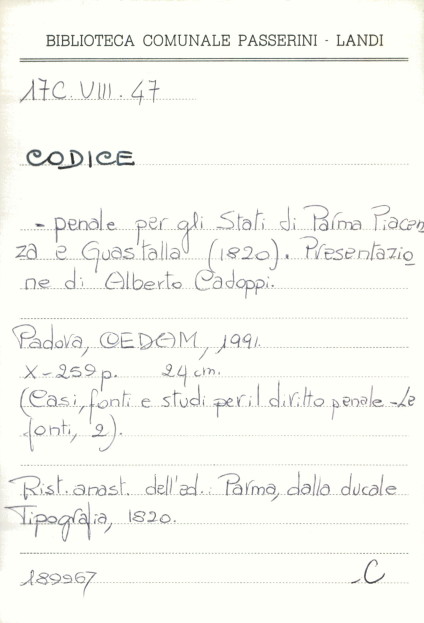 BIBLIOTECA COMUNALE PASSERINI - LANDI
17C.VIII.47
CODICE
- penale per gli Stati di Parma Piacen
za e Guastalla (1820). Presentazio
ne di Alberto Cadoppi.
Padova, CEDAM, 1991.
X-259 p. 24 cm.
(Casi, fonti e studi per il diritto penale - Le
fonti, 2).
Rist. anast. dell'ed.: Parma, dalla ducale
Tipografia, 1820.
189967 -C